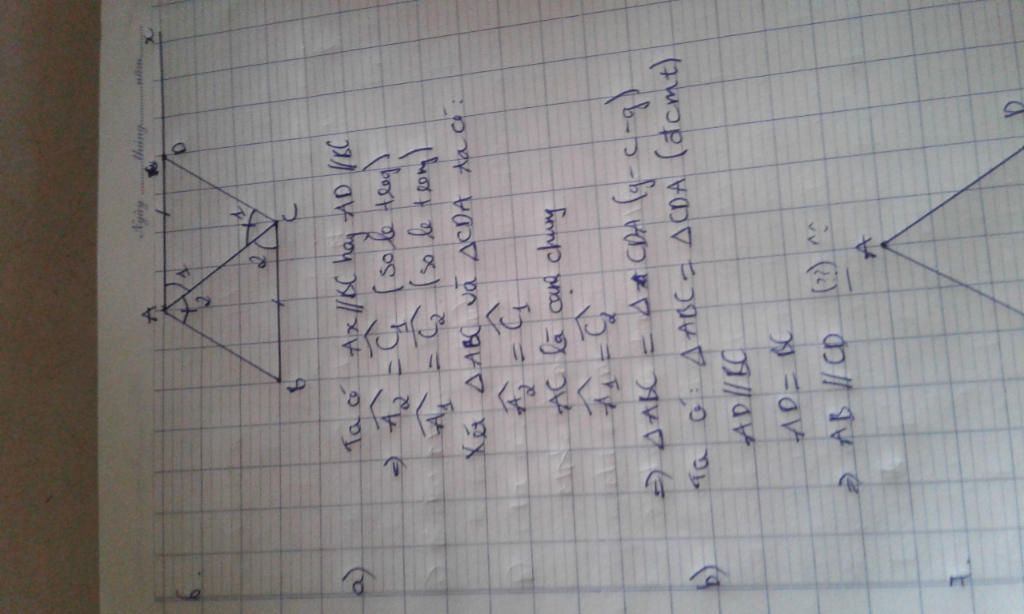 Ngày tháng năm
6.
A D x
1 2 1 2
B C
a) Ta có Ax//BC hay AD//BC
=> Â2 = Ĉ1 (so le trong)
Â1 = Ĉ2 (so le trong)
Xét ΔABC và ΔCDA ta có:
Â2 = Ĉ1
AC là cạnh chung
Â1 = Ĉ2
=> ΔABC = ΔCDA (g-c-g)
b) Ta có: ΔABC = ΔCDA (đcmt)
AD//BC
AD = BC
=> AB//CD (??) ^^
7.
A D